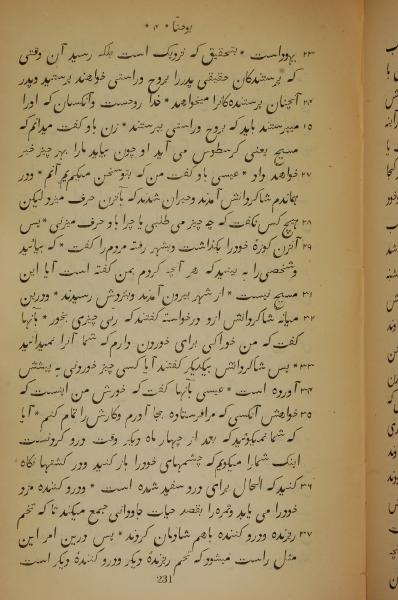 یوحنا * ۴ *
۲۳ یهوداست * بتحقیق که نزدیک است بلکه رسید آن وقتی
که پرستندکان حقیقی پدررا بروح وراستی خواهند پرستید وپدر
۲۴ آنچنان پرستنده‌کانرا میخواهد * خدا روحست وآنکسان که اورا
۲۵ میپرستند باید که بروح وراستی بپرستند * زن باو کفت میدانم که
مسیح یعنی کرسطوس می آید او چون بیاید مارا بهر چیز خبر
۲۷ خواهد داد * عیسی باو کفت من که بتو سخن میکویم آنم * ودر
هماندم شاکردانش آمدند وحیران شدند که بآنزن حرف میزد لیکن
۲۸ هیچ کس نکفت که چه چیز می طلبی یا چرا باو حرف میزنی * پس
۲۹ آنزن کوزهٔ خودرا بکذاشت وبشهر رفته مردم‌را کفت * که بیائید
وشخصی‌را به بینید که هر آنچه کردم بمن کفته است آیا این
۳۱ مسیح نیست * از شهر بیرون آمدند وبنزدش رسیدند * ودرین
۳۲ میانه شاکردانش ازو درخواسته کفتند که ربی چیزی بخور * بآنها
کفت که من خوراکی برای خوردن دارم که شما آنرا نمیدانید
۳۳ * پس شاکردانش بیکدیکر کفتند آیا کسی چیز خوردنی به پیشش
۳۴ آورده است * عیسی بآنها کفت که خورش من اینست که
۳۵ خواهش آنکسی که مرا فرستاده بجا آورم وکارش‌را تمام کنم * آیا
که شما نمیکوئید که بعد از چهار ماه دیکر وقت درو کردنست
اینک شمارا میکویم که چشمهای خودرا باز کنید ودر کشتها نکاه
۳۶ کنید که الحال برای درو سفید شده است * ودرو کننده مزد
خودرا می یابد وثمره‌را بقصد حیات جاودانی جمع میکند تا که تخم
۳۷ ریزنده ودرو کننده باهم شادمان کردند * پس درین امر این
مثل راست میشود که تخم ریزندهٔ دیکر ودرو کنندهٔ دیکر است
231